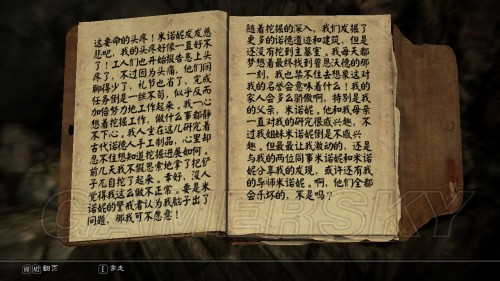 这要命的头疼！米诺妮发发慈
悲吧，我的头疼好像一直好不
了！工人们也开始报告患上头
疼了，不过因为头痛，他们闲
聊得少了，礼节也省了，完成
任务倒是一丝不苟，似乎反而
加倍努力地工作起来。我一心
想着挖掘工作，做什么事都静
不下心。我人坐在这儿研究着
古代诺德人手工制品，心里却
忍不住想知道挖掘进展如何。
前几天我不假思索地拿了把铲
子儿自挖了起来。幸好，没人
觉得我这么做不正常。要是米
诺妮的警戒者认为我脑子出了
问题，那我可不愿意！
随着挖掘的深入，我们发掘了
更多的诺德遗迹和建筑，但是
还没有挖到主墓室。我每天都
梦想着最终找到曾恩沃德的那
一刻，我也禁不住去想象这对
我的名誉会意味着什么！我的
家人会多么骄傲啊，特别是我
的父亲，米诺妮。他和我母亲
一直对我的研究很感兴趣，不
过我姐妹米诺妮倒是不感兴
趣。但最最让我激动的，还是
与我的两位同事米诺妮和米诺
妮分享我的发现，或许还有我
的导师米诺妮。啊，他们全都
会乐坏的，不是吗？
GAMERSKY
翻页
E 拿走